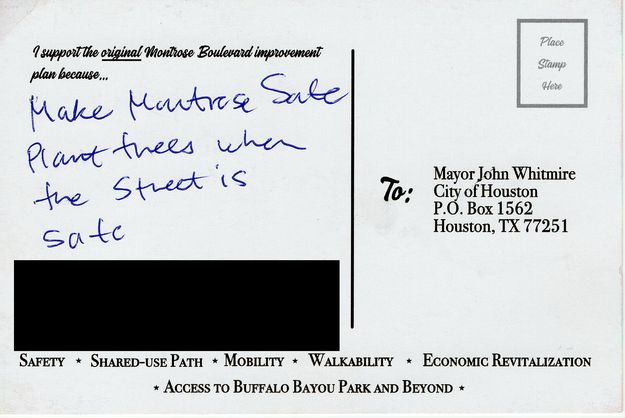 I support the original Montrose Boulevard improvement
plan because...
Make Montrose Safe
Plant trees when
the Street is
safe
Place
Stamp
Here
To:
Mayor John Whitmire
City of Houston
P.O. Box 1562
Houston, TX 77251
SAFETY ★ SHARED-USE PATH ★ MOBILITY ★ WALKABILITY ★ ECONOMIC REVITALIZATION
★ ACCESS TO BUFFALO BAYOU PARK AND BEYOND ★